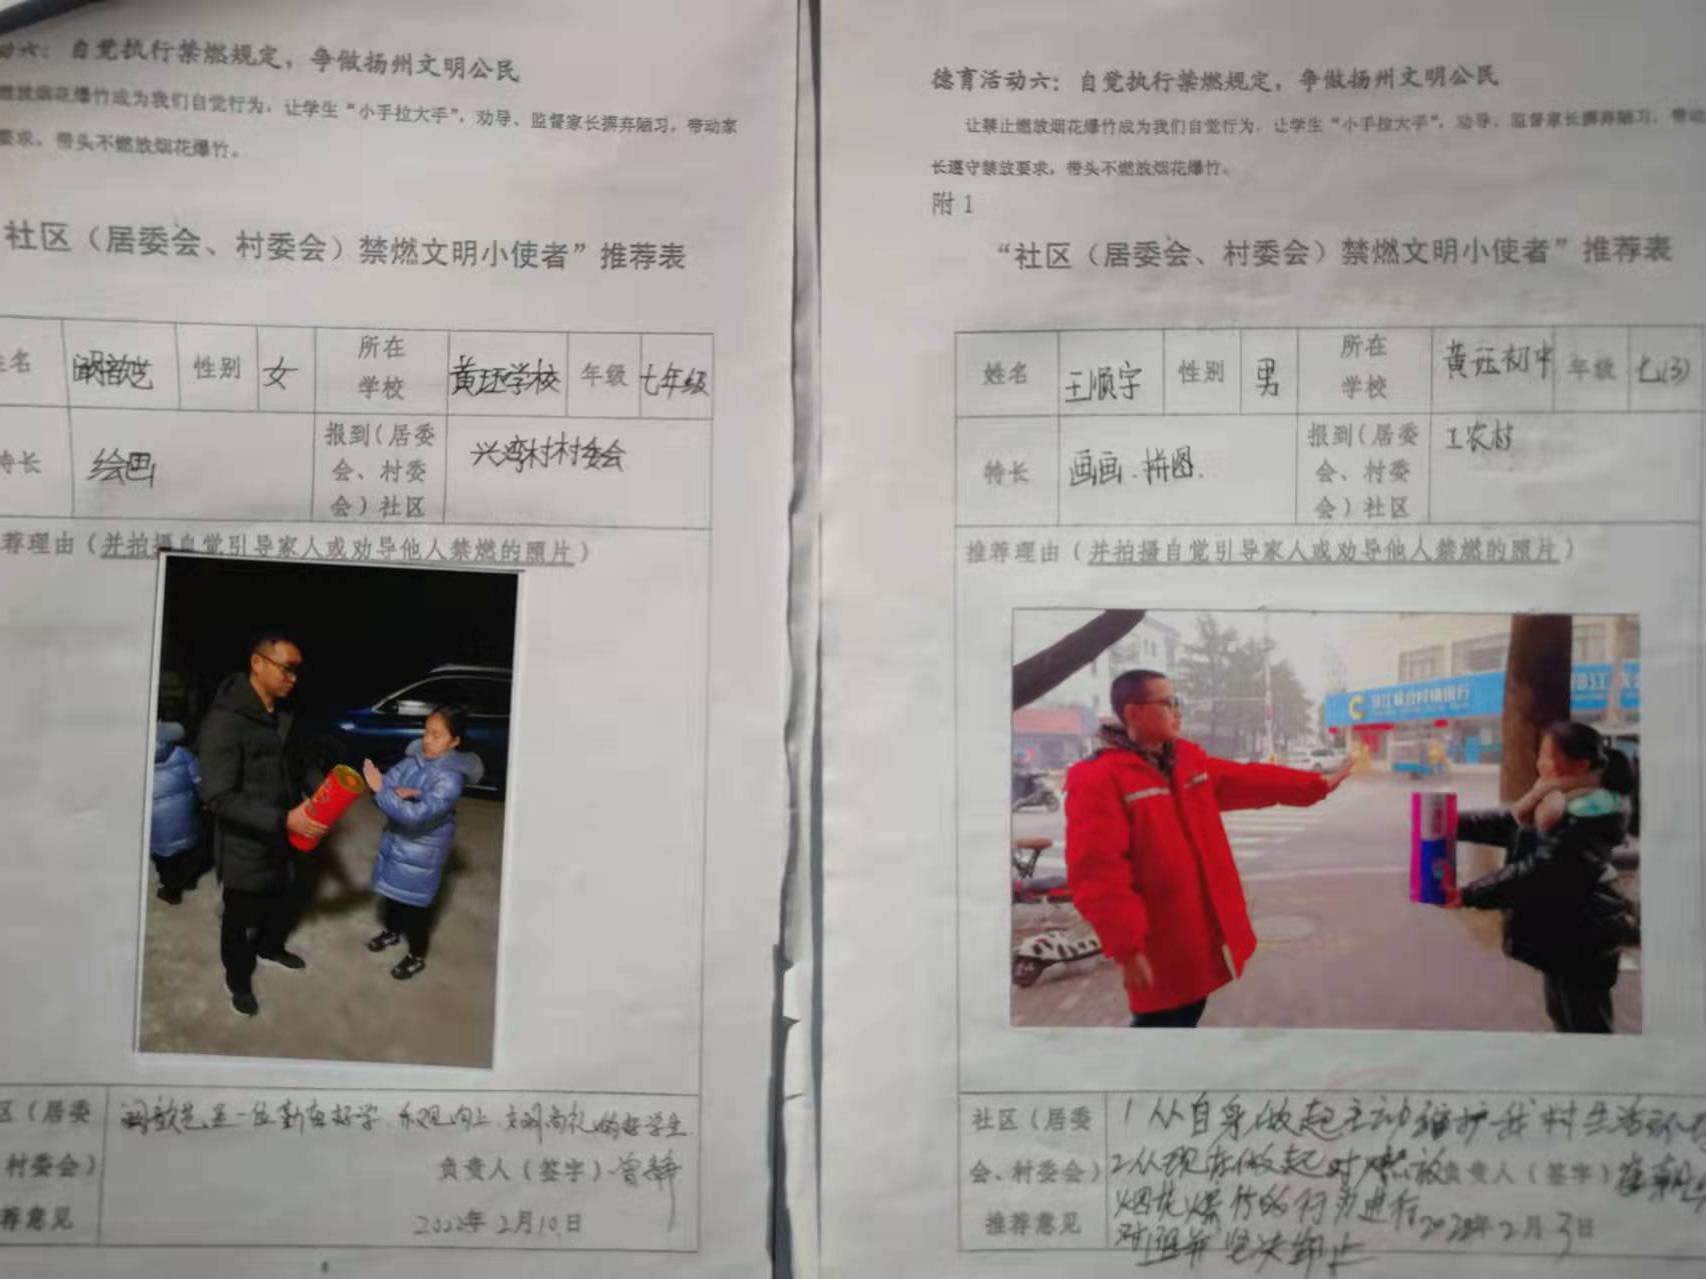 动六：自觉执行禁燃规定，争做扬州文明公民
燃放烟花爆竹成为我们自觉行为，让学生“小手拉大手”，劝导、监督家长摒弃陋习，带动家
要求，带头不燃放烟花爆竹。
社区（居委会、村委会）禁燃文明小使者”推荐表
姓名
歆艺
性别
女
所在
学校
黄珏学校
年级
七年级
特长
绘画
报到（居委
会、村委
会）社区
兴湾村村委会
荐理由（并拍摄自觉引导家人或劝导他人禁燃的照片）
区（居委
村委会）
荐意见
歆艺是一位勤奋好学、乐观向上、文明尚礼的好学生.
负责人（签字）曾静
2022年2月10日
德育活动六：自觉执行禁燃规定，争做扬州文明公民
让禁止燃放烟花爆竹成为我们自觉行为，让学生“小手拉大手”，劝导、监督家长摒弃陋习，带动
长遵守禁放要求，带头不燃放烟花爆竹。
附1
“社区（居委会、村委会）禁燃文明小使者”推荐表
姓名
王顺宇
性别
男
所在
学校
黄珏初中
年级
七(3)
特长
画画.拼图.
报到（居委
会、村委
会）社区
工农村
推荐理由（并拍摄自觉引导家人或劝导他人禁燃的照片）
邗江联合村镇银行
邗江
社区（居委
会、村委会）
推荐意见
1从自身做起主动维护我村生活环
2从现在做起对燃放
烟花爆竹的行为进行
劝阻并坚决制止
负责人（签字）
2022年2月3日